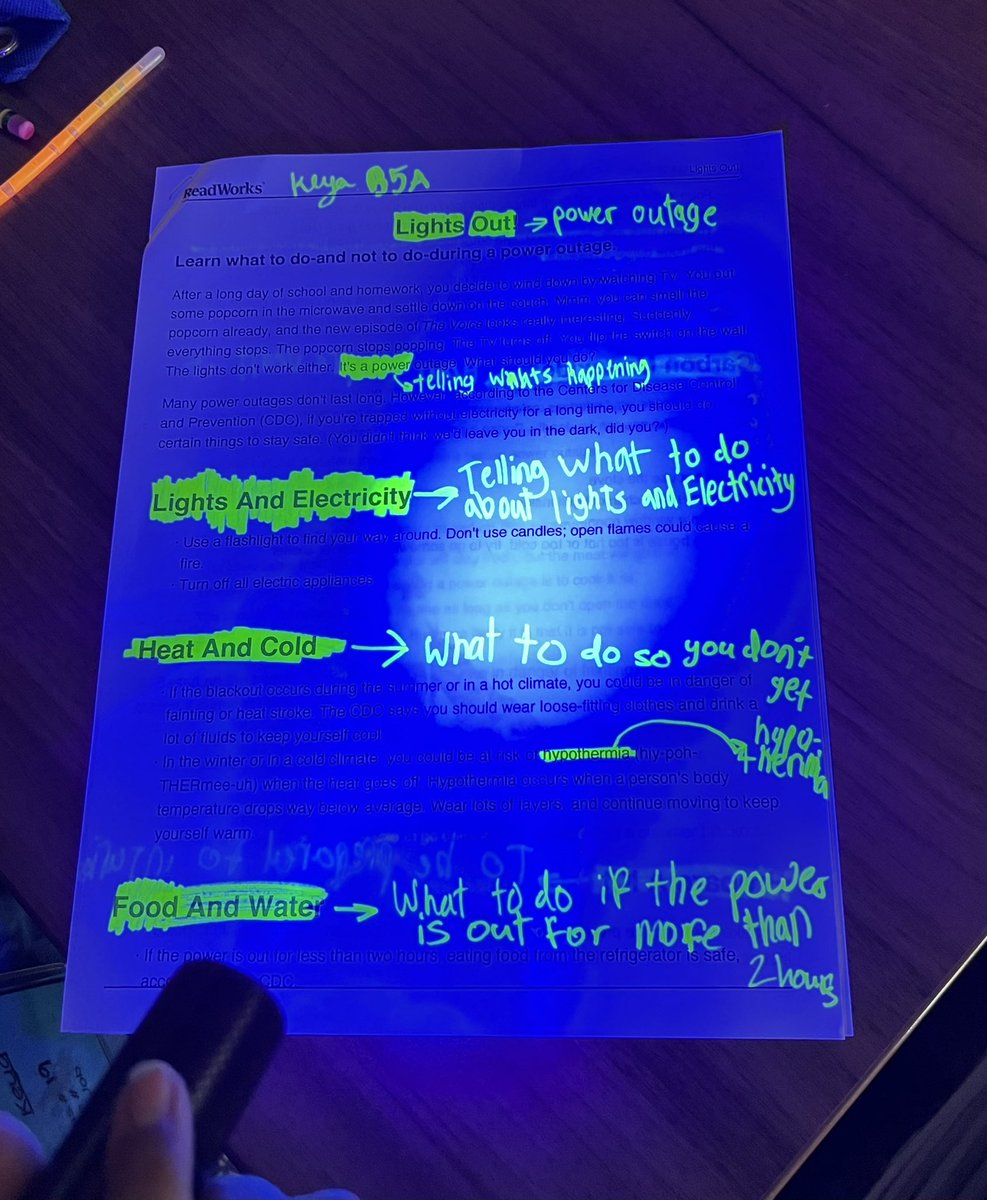 ReadWorks®
Keya B5A
Lights Out!
Lights Out! → power outage
Learn what to do-and not to do-during a power outage.
After a long day of school and homework, you decide to wind down by watching TV. You put
some popcorn in the microwave and settle down on the couch. Mmm, you can smell the
popcorn already, and the new episode of The Voice looks really interesting. Suddenly,
everything stops. The popcorn stops popping. The TV turns off. You flip the switch on the wall.
The lights don't work either. It's a power outage. What should you do?
telling whats happining
Many power outages don't last long. However, according to the Centers for Disease Control
and Prevention (CDC), if you're trapped without electricity for a long time, you should do
certain things to stay safe. (You didn't think we'd leave you in the dark, did you?)
Telling what to do
Lights And Electricity → about lights and Electricity
· Use a flashlight to find your way around. Don't use candles; open flames could cause a
fire.
· Turn off all electric appliances.
Heat And Cold → what to do so you don't
get
hypo-
thermia
· If the blackout occurs during the summer or in a hot climate, you could be in danger of
fainting or heat stroke. The CDC says you should wear loose-fitting clothes and drink a
lot of fluids to keep yourself cool.
· In the winter or in a cold climate, you could be at risk of hypothermia (hiy-poh-
THERmee-uh) when the heat goes off. Hypothermia occurs when a person's body
temperature drops way below average. Wear lots of layers, and continue moving to keep
yourself warm.
Food And Water → What to do if the power
is out for more than
2 hours
· If the power is out for less than two hours, eating food from the refrigerator is safe,
CDC.
Keya